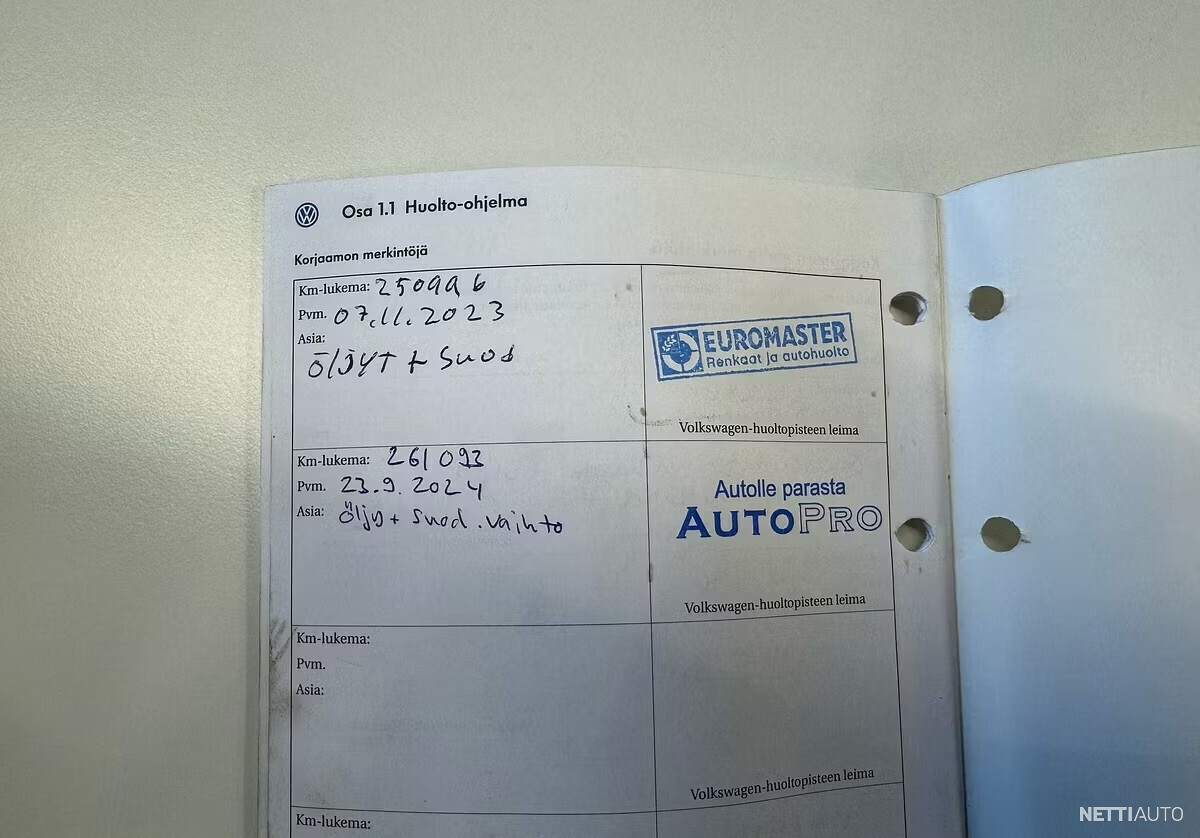 Osa 1.1 Huolto-ohjelma
Korjaamon merkintöjä
Km-lukema: 250996
Pvm. 07.11.2023
Asia:
ÖljYT + Suod
EUROMASTER
Renkaat ja autohuolto
Volkswagen-huoltopisteen leima
Km-lukema: 261093
Pvm. 23.9.2024
Asia: Öljy + Suod.vaihto
Autolle parasta
AUTOPRO
Volkswagen-huoltopisteen leima
Km-lukema:
Pvm.
Asia:
Volkswagen-huoltopisteen leima
Km-lukema:
NETTIAUTO